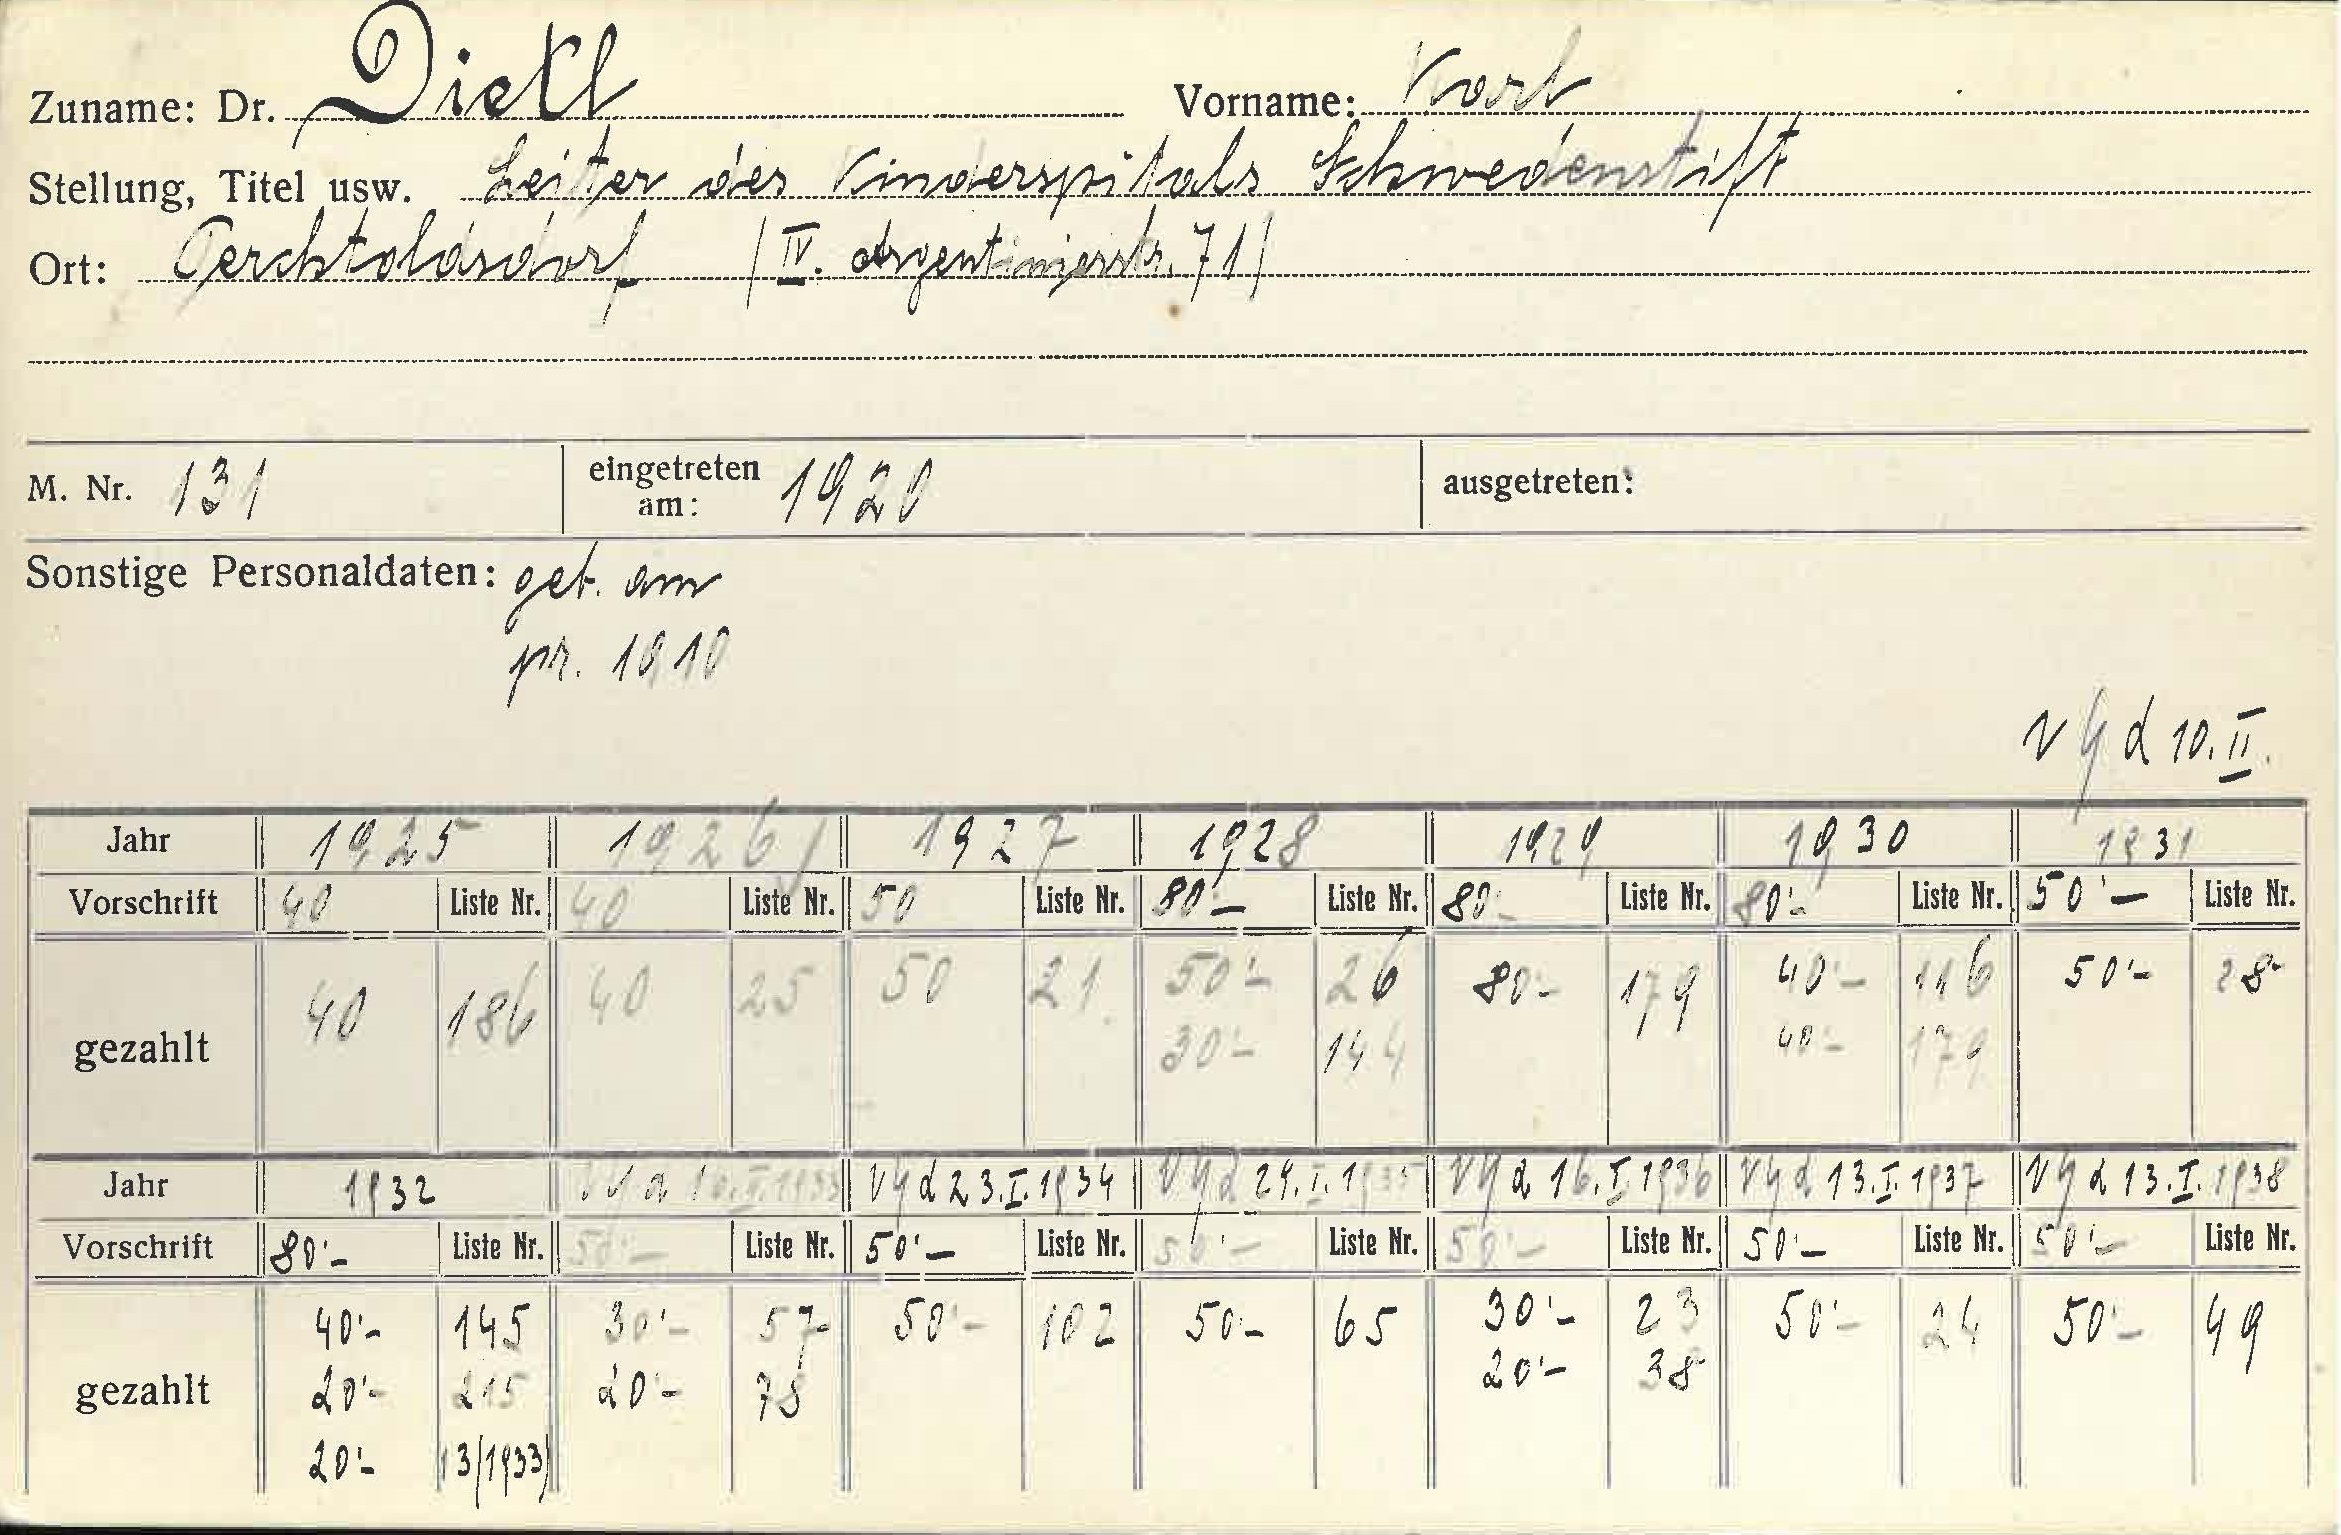 Zuname: Dr. Dietl Vorname: Karl
Stellung, Titel usw. Leiter des Kinderspitals Schwedenstift
Ort: Perchtoldsdorf (IV. Argentinierstr. 71)
M. Nr. 131 eingetreten am: 1920 ausgetreten:
Sonstige Personaldaten: geb. am
pr. 1910
V G d 10. II.
Jahr 1925 1926 1927 1928 1929 1930 1931
Vorschrift 40 Liste Nr. 40 Liste Nr. 50 Liste Nr. 80'- Liste Nr. 80'- Liste Nr. 80'- Liste Nr. 50'- Liste Nr.
gezahlt 40 186 40 25 50 21. 50'- 26 80- 179 40'- 116 50'- 28
30'- 144 40'- 179
Jahr 1932 1933 V G d 23. I. 1934 V G d 29. I. 1935 V G d 16. I. 1936 V G d 13. I. 1937 V G d 13. I. 1938
Vorschrift 80'- Liste Nr. 50'- Liste Nr. 50'- Liste Nr. 50'- Liste Nr. 50'- Liste Nr. 50'- Liste Nr. 50'- Liste Nr.
gezahlt 40'- 145 30'- 57 50'- 102 50- 65 30'- 23 50'- 24 50'- 49
20'- 215 20'- 78 20'- 38
20'- 13/1933)